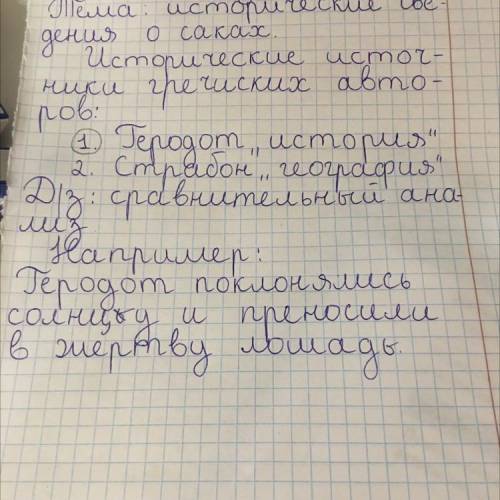 Тема: исторические све-
дения о саках.
Исторические источ-
ники гречиских авто-
ров:
1 Геродот „история"
2. Страбон „география"
Д/з: сравнительный ана-
лиз
Например:
Геродот поклонялись
солницьу и преносили
в жертву лошадь.